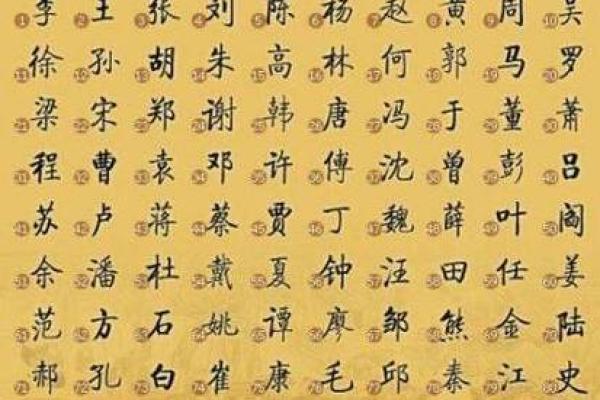 1 李 2 王 3 张 4 刘 5 陈 6 杨 7 赵 8 黄 9 周 10 吴
11 徐 12 孙 13 胡 14 朱 15 高 16 林 17 何 18 郭 19 马 20 罗
21 梁 22 宋 23 郑 24 谢 25 韩 26 唐 27 冯 28 于 29 董 30 萧
31 程 32 曹 33 袁 34 邓 35 许 36 傅 37 沈 38 曾 39 彭 40 吕
41 苏 42 卢 43 蒋 44 蔡 45 贾 46 丁 47 魏 48 薛 49 叶 50 阎
51 余 52 潘 53 杜 54 戴 55 夏 56 钟 57 汪 58 田 59 任 60 姜
61 范 62 方 63 石 64 姚 65 谭 66 廖 67 邹 68 熊 69 金 70 陆
71 郝 72 孔 73 白 74 崔 75 康 76 毛 77 邱 78 秦 79 江 80 史